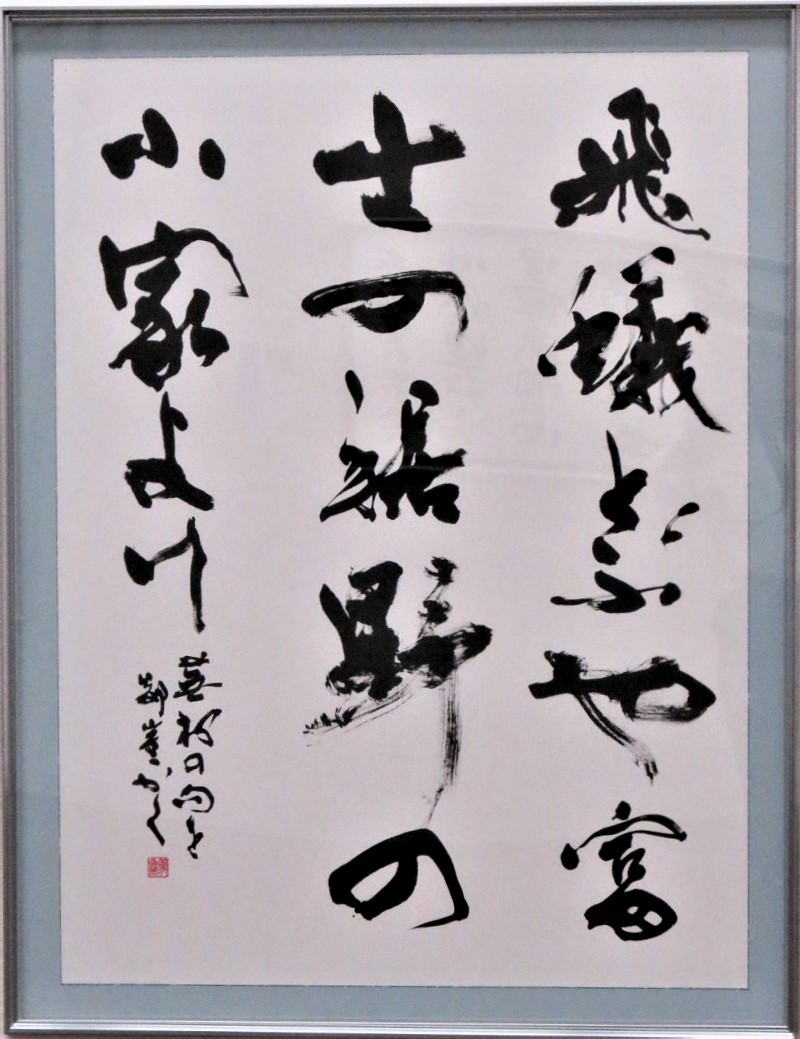 飛蟻とぶや富
士の裾野の
小家より
蕪村の句を
かく